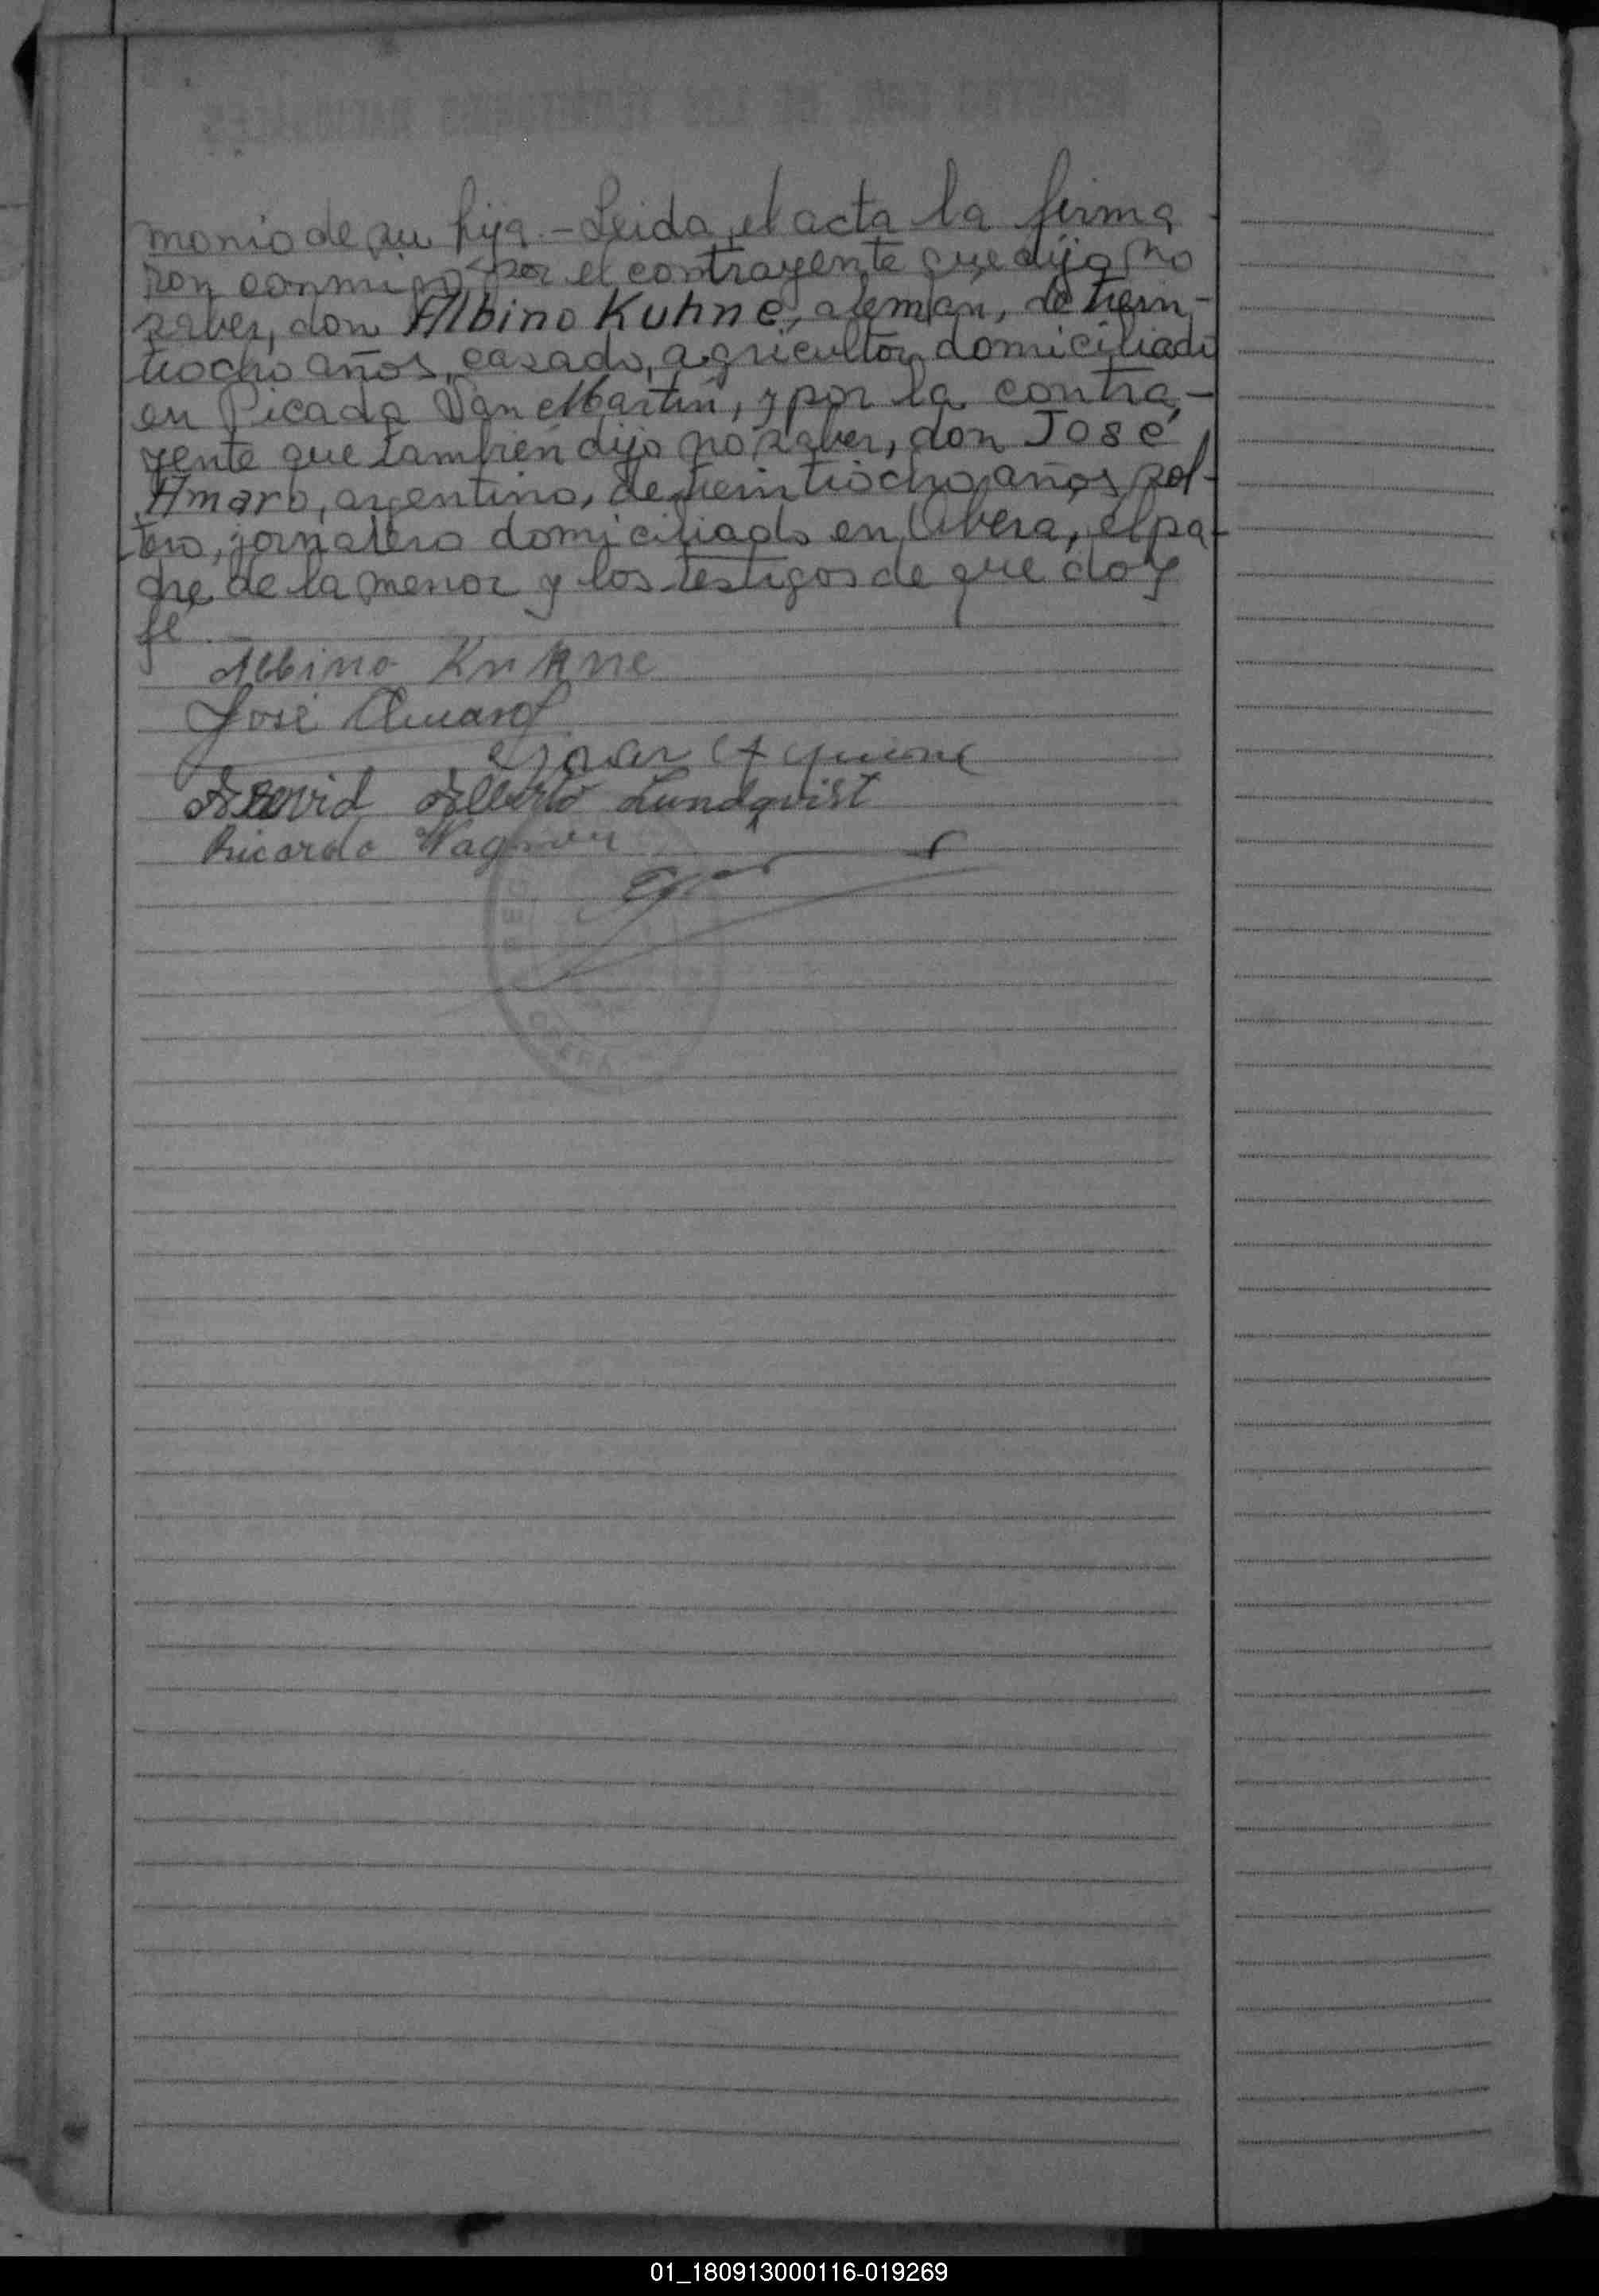 monio de su hija.- Leida el acta la firma
ron conmigo, por el contrayente que dijo no
saber, don Albino Kuhne, aleman, de trein-
tiocho años, casado, agricultor, domiciliado
en Picada San Martin, y por la contra-
yente que también dijo no saber, don José
Amaro, argentino, de treintiocho años, sol-
tero, jornalero domiciliado en Obera, el pa-
dre de la menor y los testigos de que doy
fé.-
Albino Kuhne
José Amaro
Alberto Lundqvist
Ricardo Wagner
OBERA
01_180913000116-019269